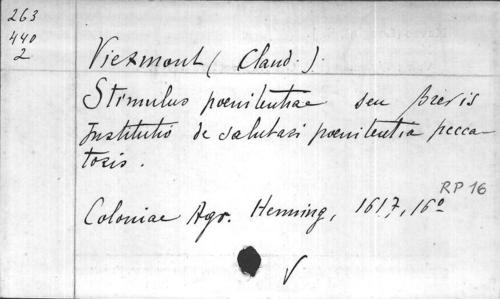 263
440
2
Viexmont ( Claud. ).
Stimulus poenitentiae seu brevis
Institutio de salutari poenitentia pecca-
toris.
RP 16
Coloniae Agr. Henning, 1617, 16º
V